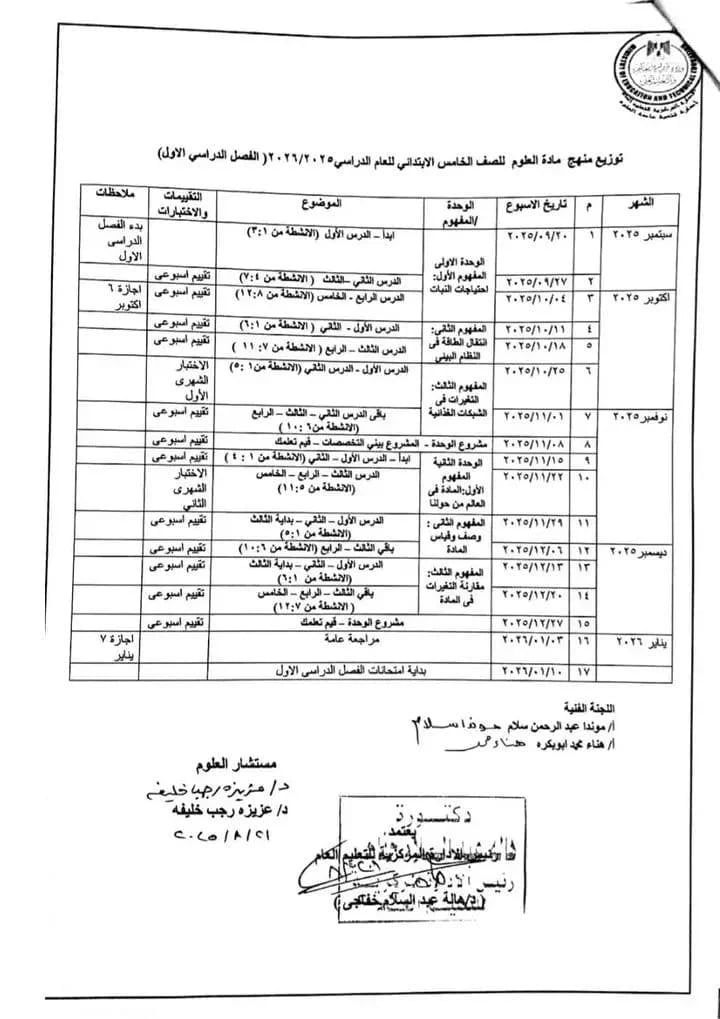 MINISTRY OF EDUCATION AND TECHNICAL EDUCATION
توزيع منهج مادة العلوم للصف الخامس الابتدائي للعام الدراسي ٢٠٢٦/٢٠٢٥( الفصل الدراسي الاول)
الشهر م تاريخ الاسبوع الوحدة /المفهوم الموضوع التقييمات والاختبارات ملاحظات
سبتمبر ٢٠٢٥ ١ ٢٠٢٥/٠٩/٢٠ الوحدة الاولى المفهوم الأول: احتياجات النبات ابدأ – الدرس الأول (الانشطة من ٣:١) بدء الفصل الدراسى الاول
٢ ٢٠٢٥/٠٩/٢٧ الدرس الثاني –الثالث ( الانشطة من ٧:٤) تقييم اسبوعى
اكتوبر ٢٠٢٥ ٣ ٢٠٢٥/١٠/٠٤ الدرس الرابع - الخامس (الانشطة من ١٢:٨) تقييم اسبوعى اجازة ٦ اكتوبر
٤ ٢٠٢٥/١٠/١١ المفهوم الثاني: انتقال الطاقة فى النظام البيئي الدرس الأول - الثاني (الانشطة من ٦:١) تقييم اسبوعى
٥ ٢٠٢٥/١٠/١٨ الدرس الثالث – الرابع ( الانشطة من ٧: ١١) تقييم اسبوعى
٦ ٢٠٢٥/١٠/٢٥ المفهوم الثالث: التغيرات فى الشبكات الغذائية الدرس الأول - الدرس الثاني (الانشطة من١ :٥) الاختبار الشهرى الأول
نوفمبر ٢٠٢٥ ٧ ٢٠٢٥/١١/٠١ باقى الدرس الثاني – الثالث – الرابع (الانشطة من٦ :١٠) تقييم اسبوعى
٨ ٢٠٢٥/١١/٠٨ مشروع الوحدة - المشروع بيني التخصصات – قيم تعلمك تقييم اسبوعى
٩ ٢٠٢٥/١١/١٥ الوحدة الثانية المفهوم الأول:المادة فى العالم من حولنا ابدأ – الدرس الأول – الثاني (الانشطة من ١ : ٤) تقييم اسبوعى
١٠ ٢٠٢٥/١١/٢٢ الدرس الثالث – الرابع – الخامس (الانشطة من ١١:٥) الاختبار الشهرى الثاني
١١ ٢٠٢٥/١١/٢٩ المفهوم الثانى : وصف وقياس المادة الدرس الأول – الثاني – بداية الثالث (الانشطة من ٥:١) تقييم اسبوعى
ديسمبر ٢٠٢٥ ١٢ ٢٠٢٥/١٢/٠٦ باقي الثالث – الرابع (الانشطة من ١٠:٦) تقييم اسبوعى
١٣ ٢٠٢٥/١٢/١٣ المفهوم الثالث: مقارنة التغيرات فى المادة الدرس الأول – الثاني – بداية الثالث (الانشطة من ٦:١) تقييم اسبوعى
١٤ ٢٠٢٥/١٢/٢٠ باقي الثالث – الرابع – الخامس (الانشطة من ١٢:٧ ) تقييم اسبوعى
١٥ ٢٠٢٥/١٢/٢٧ مشروع الوحدة – قيم تعلمك تقييم اسبوعى
يناير ٢٠٢٦ ١٦ ٢٠٢٦/٠١/٠٣ مراجعة عامة اجازة ٧ يناير
١٧ ٢٠٢٦/٠١/١٠ بداية امتحانات الفصل الدراسى الاول
اللجنة الفنية
أ/ موندا عبد الرحمن سلام
أ/ هناء محمد ابوبكره
مستشار العلوم
د/ عزيزه رجب خليفه
د/ عزيزه رجب خليفه
٢٠٢٥/٨/٢١
دكتورة
يعتمد،
رئيس الادارة المركزية للتعليم العام
( د/هالة عبد السلام خفاجى )